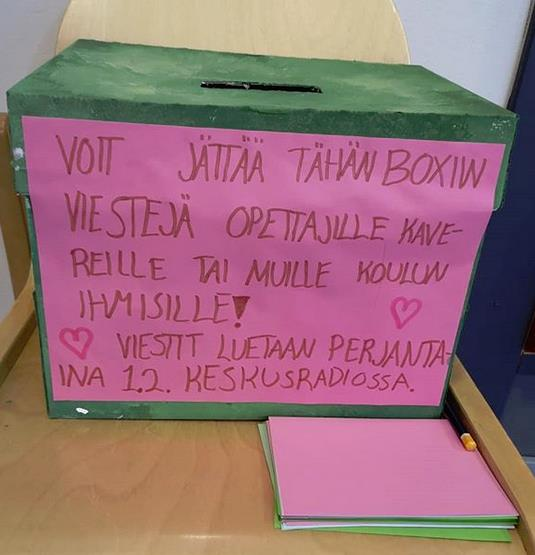 VOIT JÄTTÄÄ TÄHÄN BOXIIN
VIESTEJÄ OPETTAJILLE KAVE-
REILLE TAI MUILLE KOULUN
IHMISILLE!
VIESTIT LUETAAN PERJANTA-
INA 1.2. KESKUSRADIOSSA.